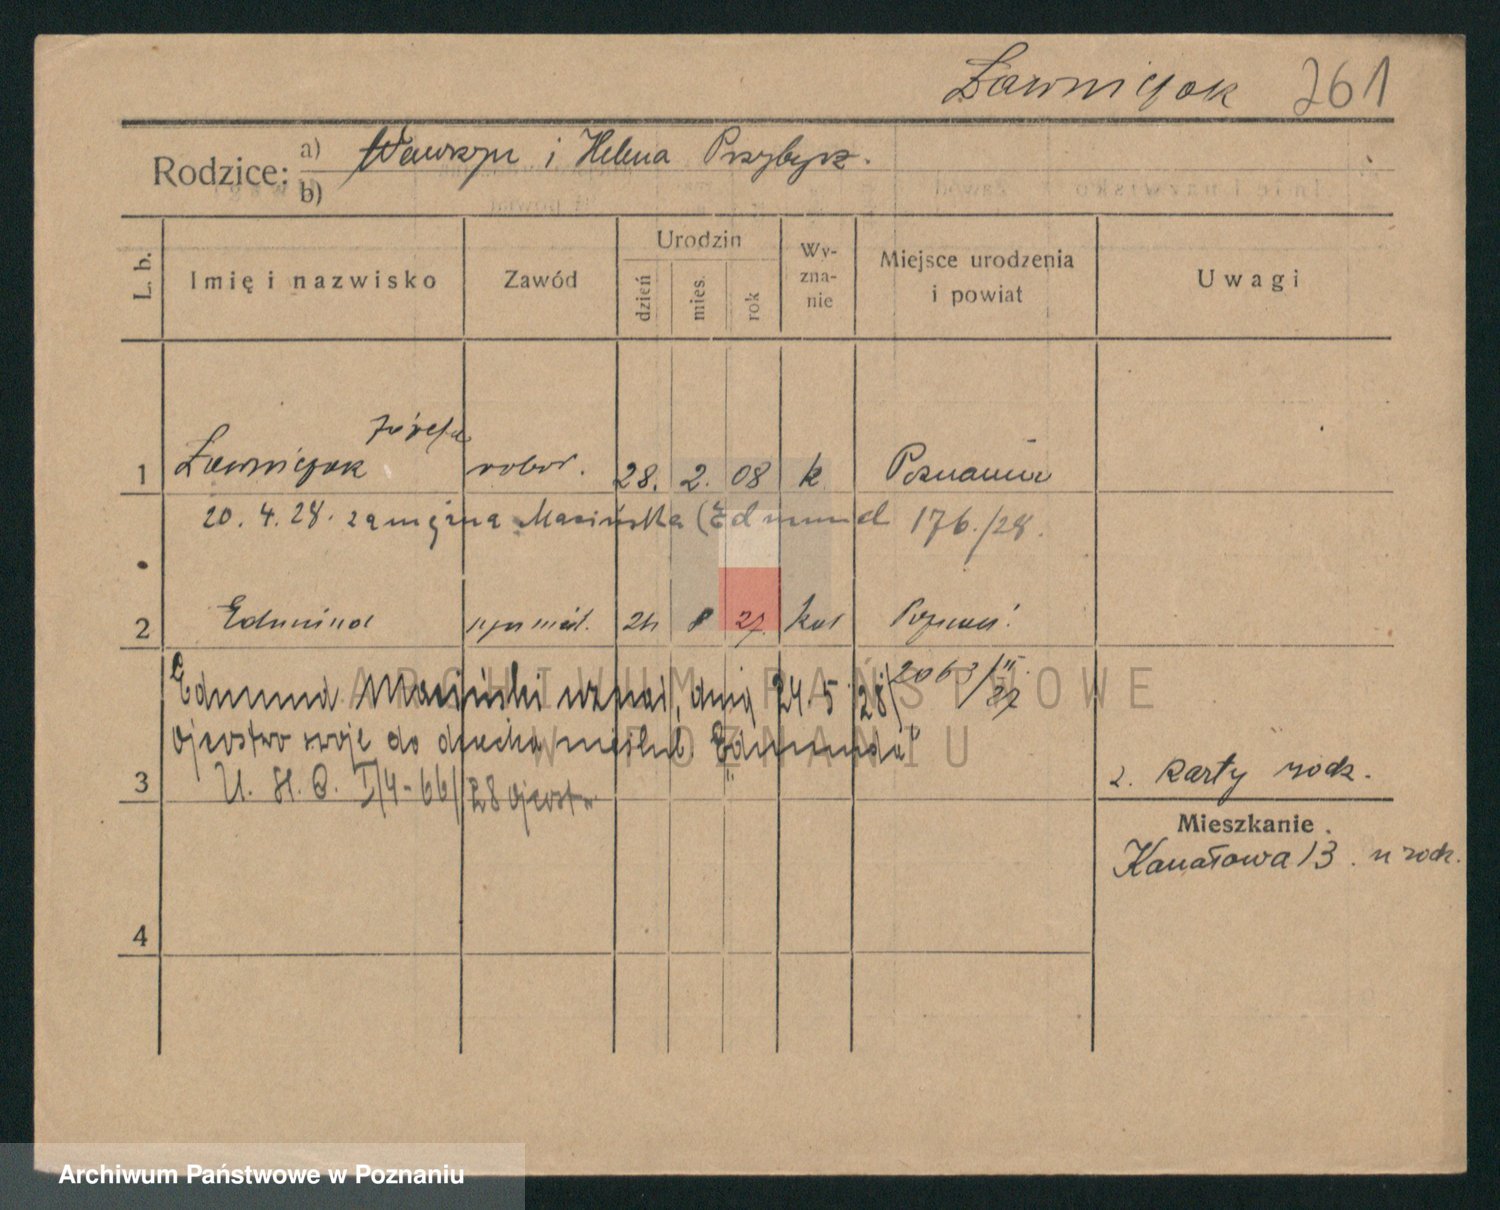 Ławniczak 261
Rodzice: a) Wawrzyn i Helena Przybysz.
b)
L. b. Imię i nazwisko Zawód Urodzin dzień mies. rok Wy-zna-nie Miejsce urodzenia i powiat Uwagi
Józefa
1 Ławniczak robot. 28. 2. 08 k Poznania
20. 4. 28. zamężna Masińska (Edmund 176./28.
2 Edmund 24 8 27. kat Poznań.
Edmund Masiński uznał, dnia 24. 5 28 2063/II 27
ojcostwo swoje do dziecka nieślub. "Edmunda"
3 U. St. C. I/4-66/28 ojcostw
2. karty rodz.
Mieszkanie
Kanałowa 13. u rodz.
4
ARCHIWUM PAŃSTWOWE
W POZNANIU
Archiwum Państwowe w Poznaniu